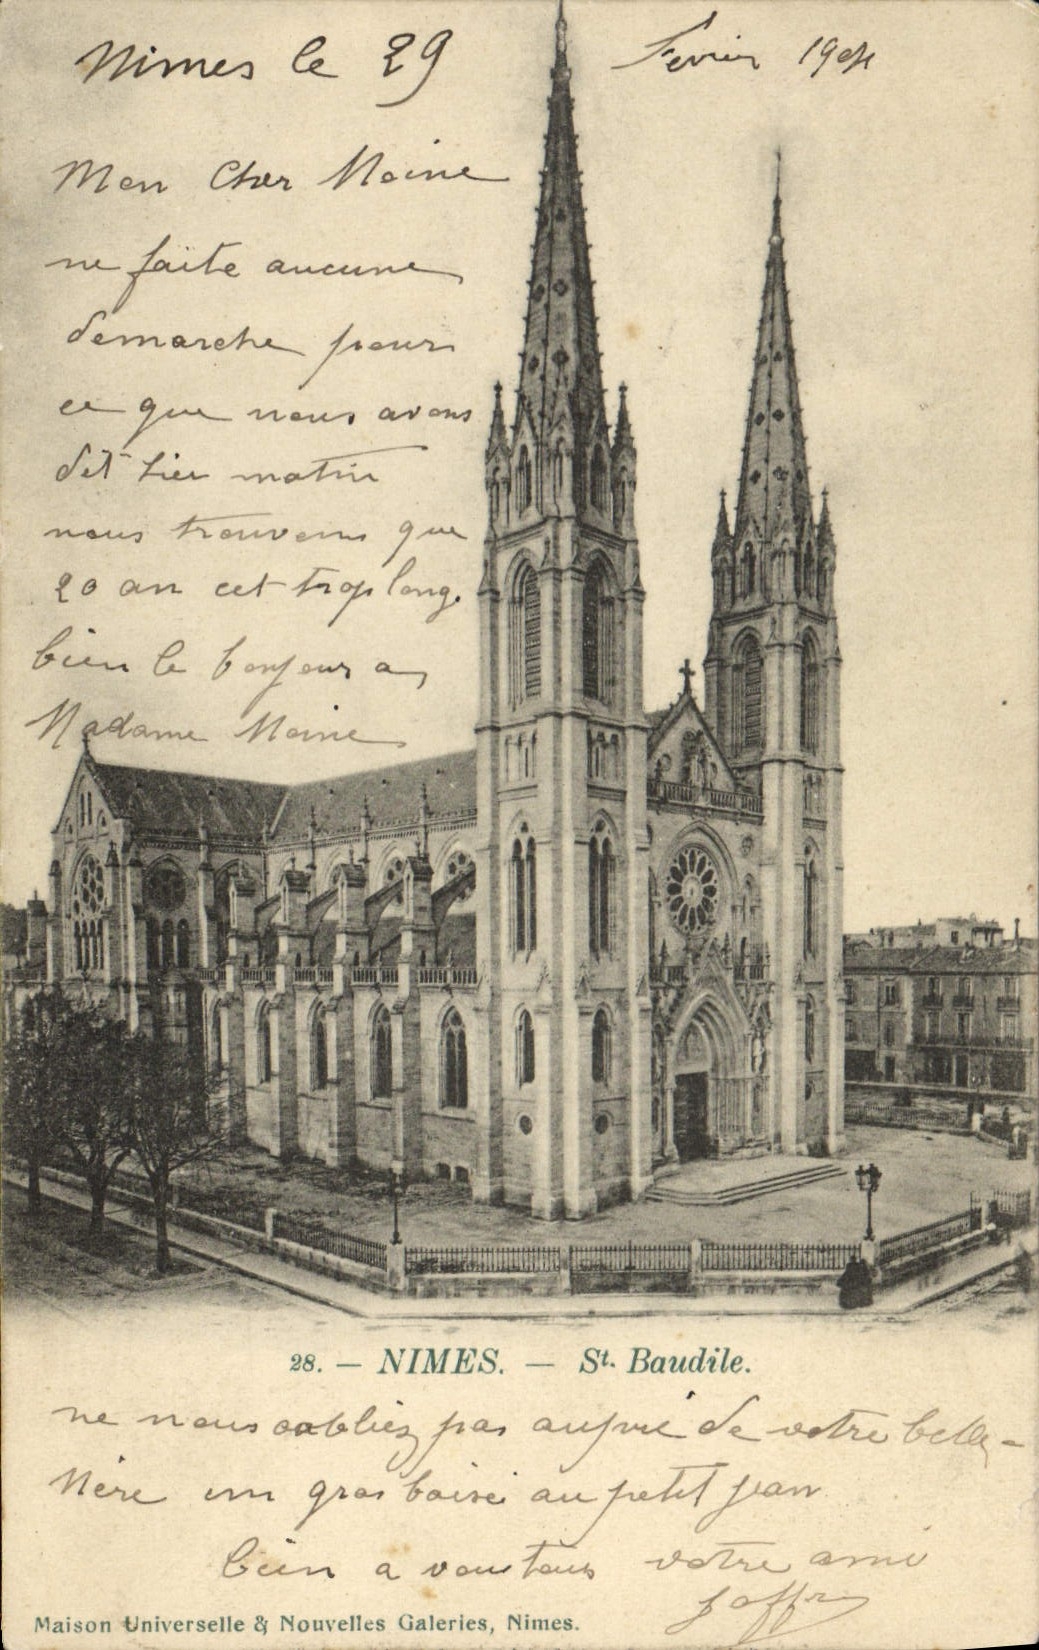 Nimes le 29 Fevrier 1904
Mon Cher Moine
ne faite aucune
demarche pour
ce que nous avons
dit hier matin
nous trouvons que
20 an cet trop long.
bien le bonjour a
Madame Moine
28. — NIMES. — St. Baudile.
ne nous oubliez pas auprié de votre belle-
Mère un gros baisé au petit jean
bien a vous tous votre ami
Joffre
Maison Universelle & Nouvelles Galeries, Nimes.